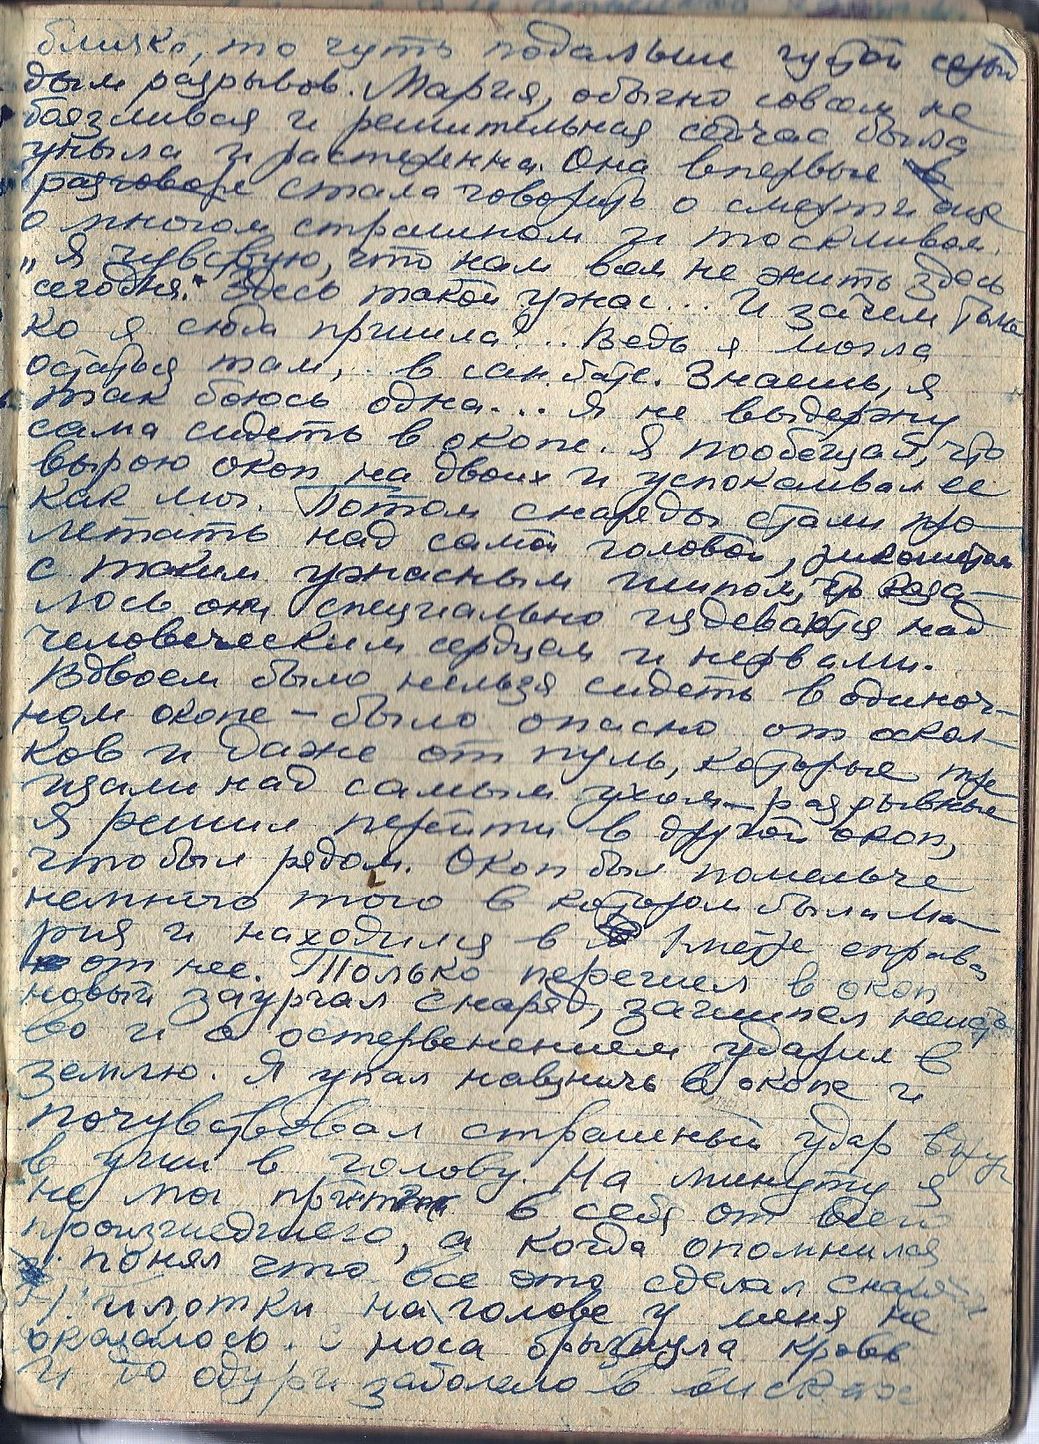 близко, то чуть подальше густой седый
дым разрывов. Мария, обычно совсем не
боязливая и решительная сейчас была
уныла и растерянна. Она впервые в
разговоре стала говорить о смерти еще
о многом страшном и тоскливом.
„Я чувствую, что нам вам не жить здесь
сегодня." Здесь такой ужас... И зачем толь
ко я сюда пришла?.. Ведь я могла
остаться там, в сан.бате. Знаешь, я
так боюсь одна... Я не выдержу
сама сидеть в окопе. Я пообещал, что
вырою окоп на двоих и успокаивал ее
как мог. Потом снаряды стали про-
летать над самой головой,
с таким ужасным шипом, что каза-
лось они специально издеваются над
человеческим сердцем и нервами.
Вдвоем было нельзя сидеть в одиноч-
ном окопе – было опасно от оскол-
ков и даже от пуль, которые тре
щали над самым ухом – разрывные
Я решил перейти в другой окоп,
что был рядом. Окоп был помельче
немного того в котором была Ма-
рия и находился в 1 метре справа
от нее. Только перешел в окоп
новый заурчал снаряд, зашипел неисто
во и с остервенением ударил в
землю. Я упал навзничь в окопе и
почувствовал страшный удар
в уши в голову. На минуту я
не мог притти в себя от всего
произшедшего, а когда опомнился
понял что все это сделал снаряд
Пилотки на голове у меня не
оказалось. С носа брызнула кровь
и до одури заболело в висках